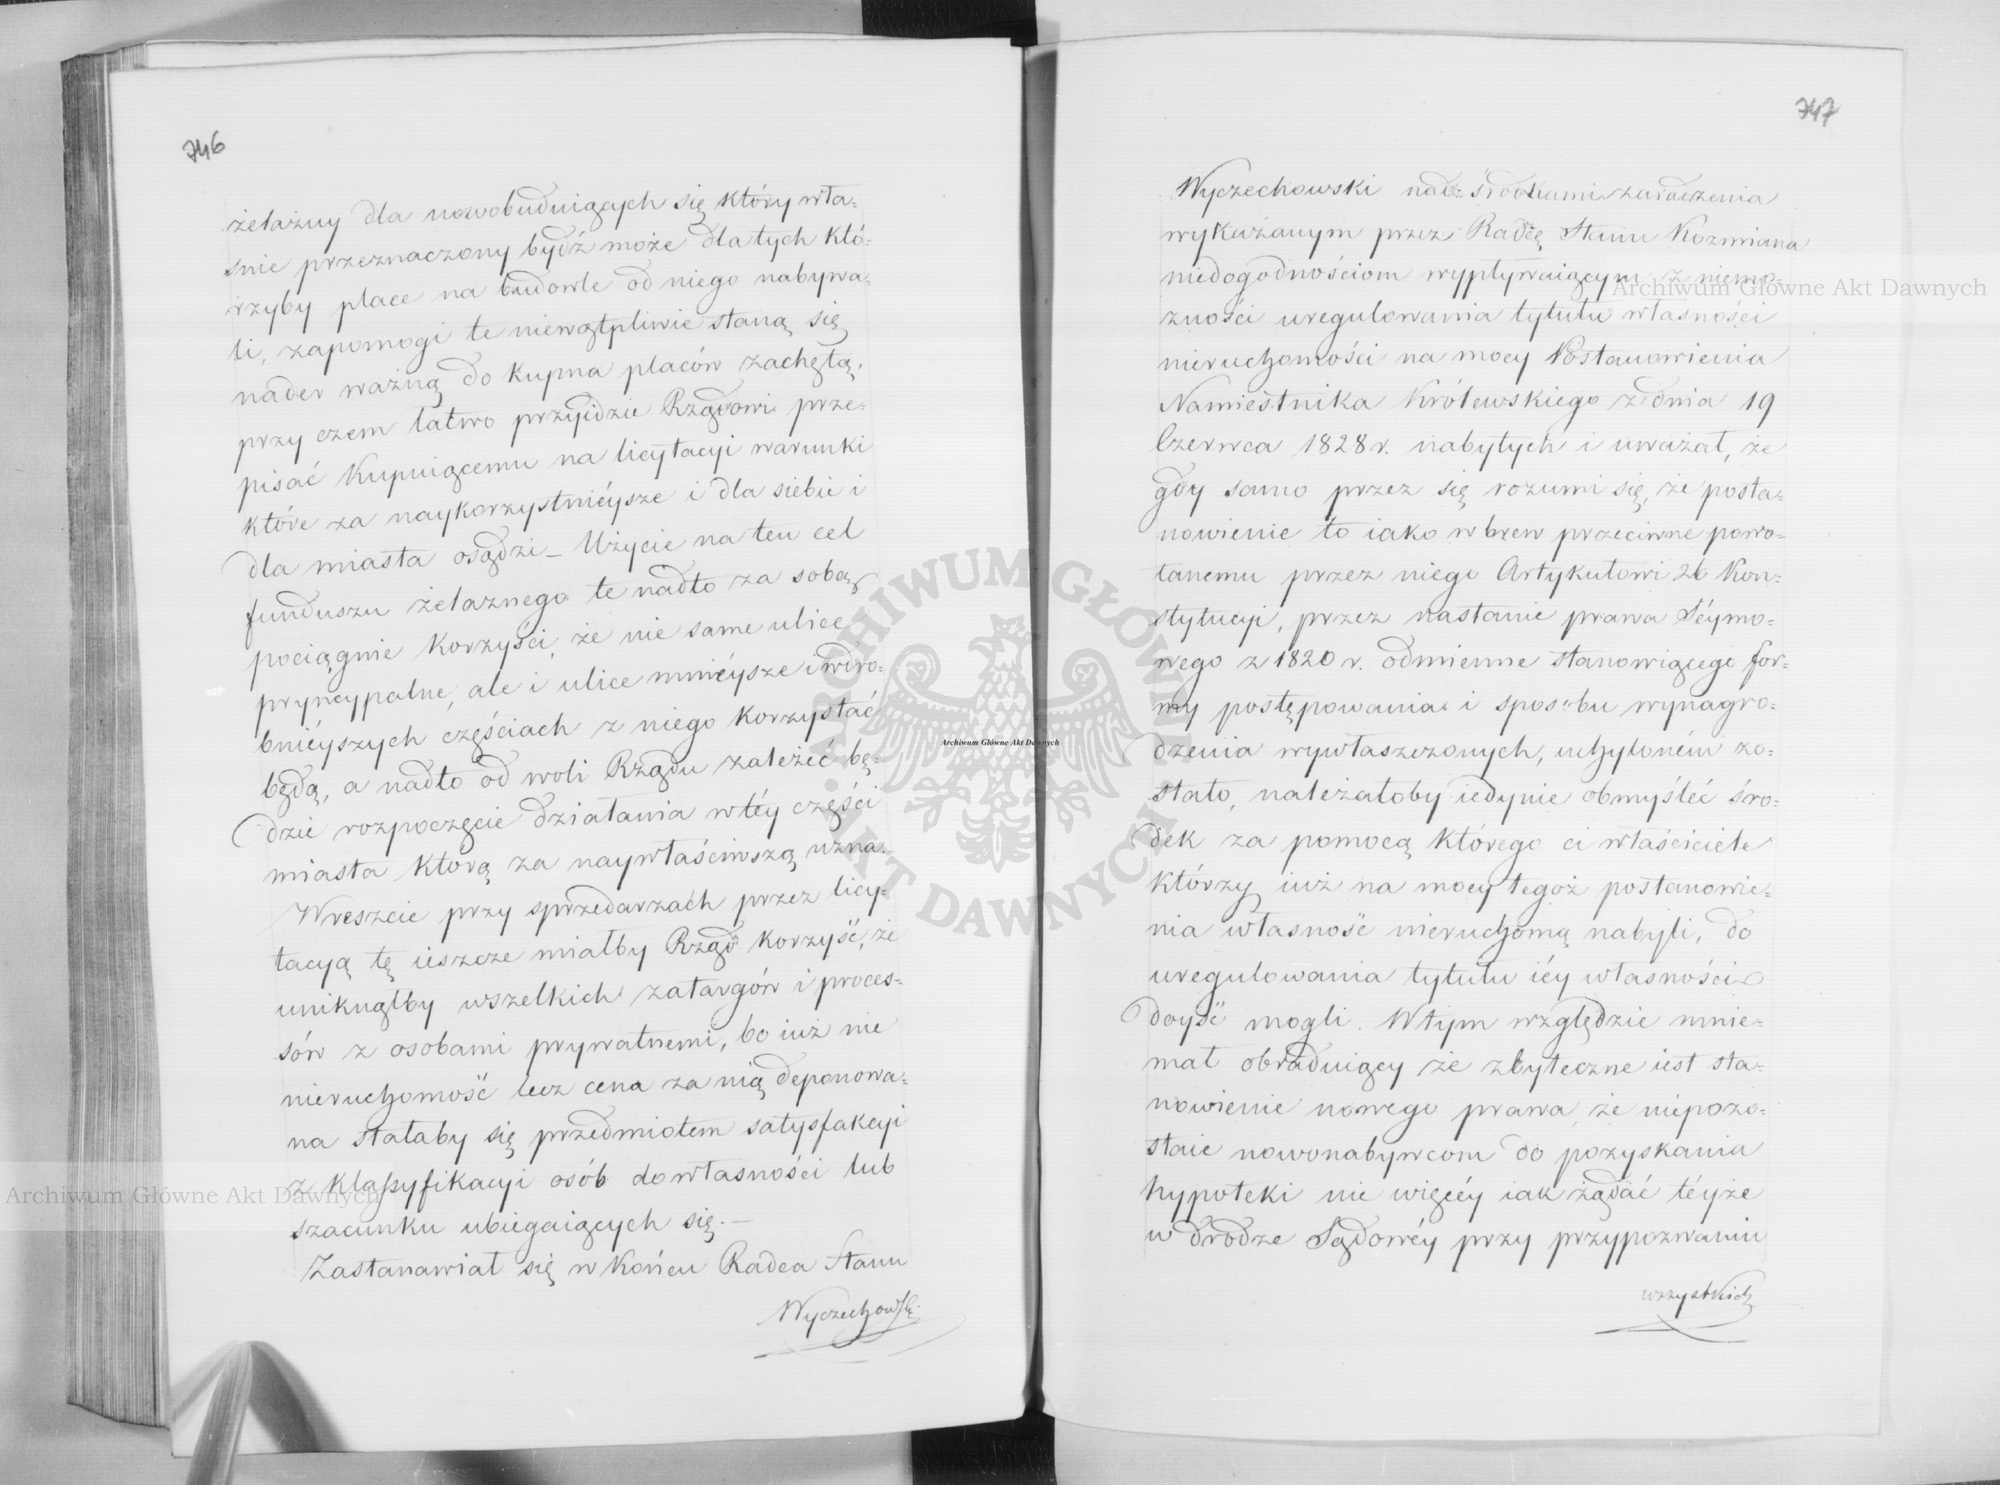 746
żelazny dla nowobuduiących się który wła-
snie przeznaczony bydź może dla tych któ-
rzyby place na budowle od niego nabywa-
li, zapomogi te niewątpliwie staną się
nader ważną do kupna placów zachętą,
przy czem łatwo przyidzie Rządowi prze-
pisać kupuiącemu na licytacyi warunki
które za naykorzystnieysze i dla siebie i
dla miasta osądzi – Użycie na ten cel
funduszu żelaznego te nadto za sobą
pociągnie korzyści, że nie same ulice
pryncypalne, ale i ulice mnieysze i w dro-
bnieyszych częściach z niego korzystać
będą, a nadto od woli Rządu zależeć bę-
dzie rozpoczęcie działania w téy części
miasta którą za naywłaściwszą uzna.
Wreszcie przy sprzedarzach przez licy-
tacyą tę ieszcze miałby Rząd korzyść, że
uniknąłby wszelkich zatargów i proces-
sów z osobami prywatnemi, bo iuż nie
nieruchomość lecz cena za nią deponowa-
na stałaby się przedmiotem satysfakcyi
z klassyfikacyi osób do własności lub
szacunku ubiegaiących się. –
Zastanawiał się w końcu Radca Stanu
Wyczechowski
747
Wyczechowski nad środkami zaradzenia
wykazanym przez Radcę Stanu Kozmiana
niedogodnościom wypływaiącym z niemo-
żności uregulowania tytułu własności
nieruchomości na mocy Postanowienia
Namiestnika Królewskiego z dnia 19
Czerwca 1828 r. nabytych i uważał, że
gdy samo przez się rozumi się, że posta-
nowienie to iako wbrew przeciwne powo-
łanemu przez niego Artykułowi 26 Kon-
stytucyi, przez nastanie prawa Séymo-
wego z 1820 r. odmienne stanowiącego for-
my postępowania i sposobu wynagro-
dzenia wywłaszczonych, uchyloném zo-
stało, należałoby iedynie obmyśléć śro-
dek za pomocą którego ci właściciele
którzy iuż na mocy tegoż postanowie-
nia własność nieruchomą nabyli, do
uregulowania tytułu iéy własności
doyść mogli. W tym względzie mnie-
mał obraduiący że zbyteczne iest sta-
nowienie nowego prawa, że niepozo-
staie nowonabywcom do pozyskania
hypoteki nic więcéy iak żądać téyże
w drodze Sądowéy przy przypozwaniu
wszystkich
Archiwum Główne Akt Dawnych
Archiwum Główne Akt Dawnych
Archiwum Główne Akt Dawnych
ARCHIWUM GŁÓWNE AKT DAWNYCH